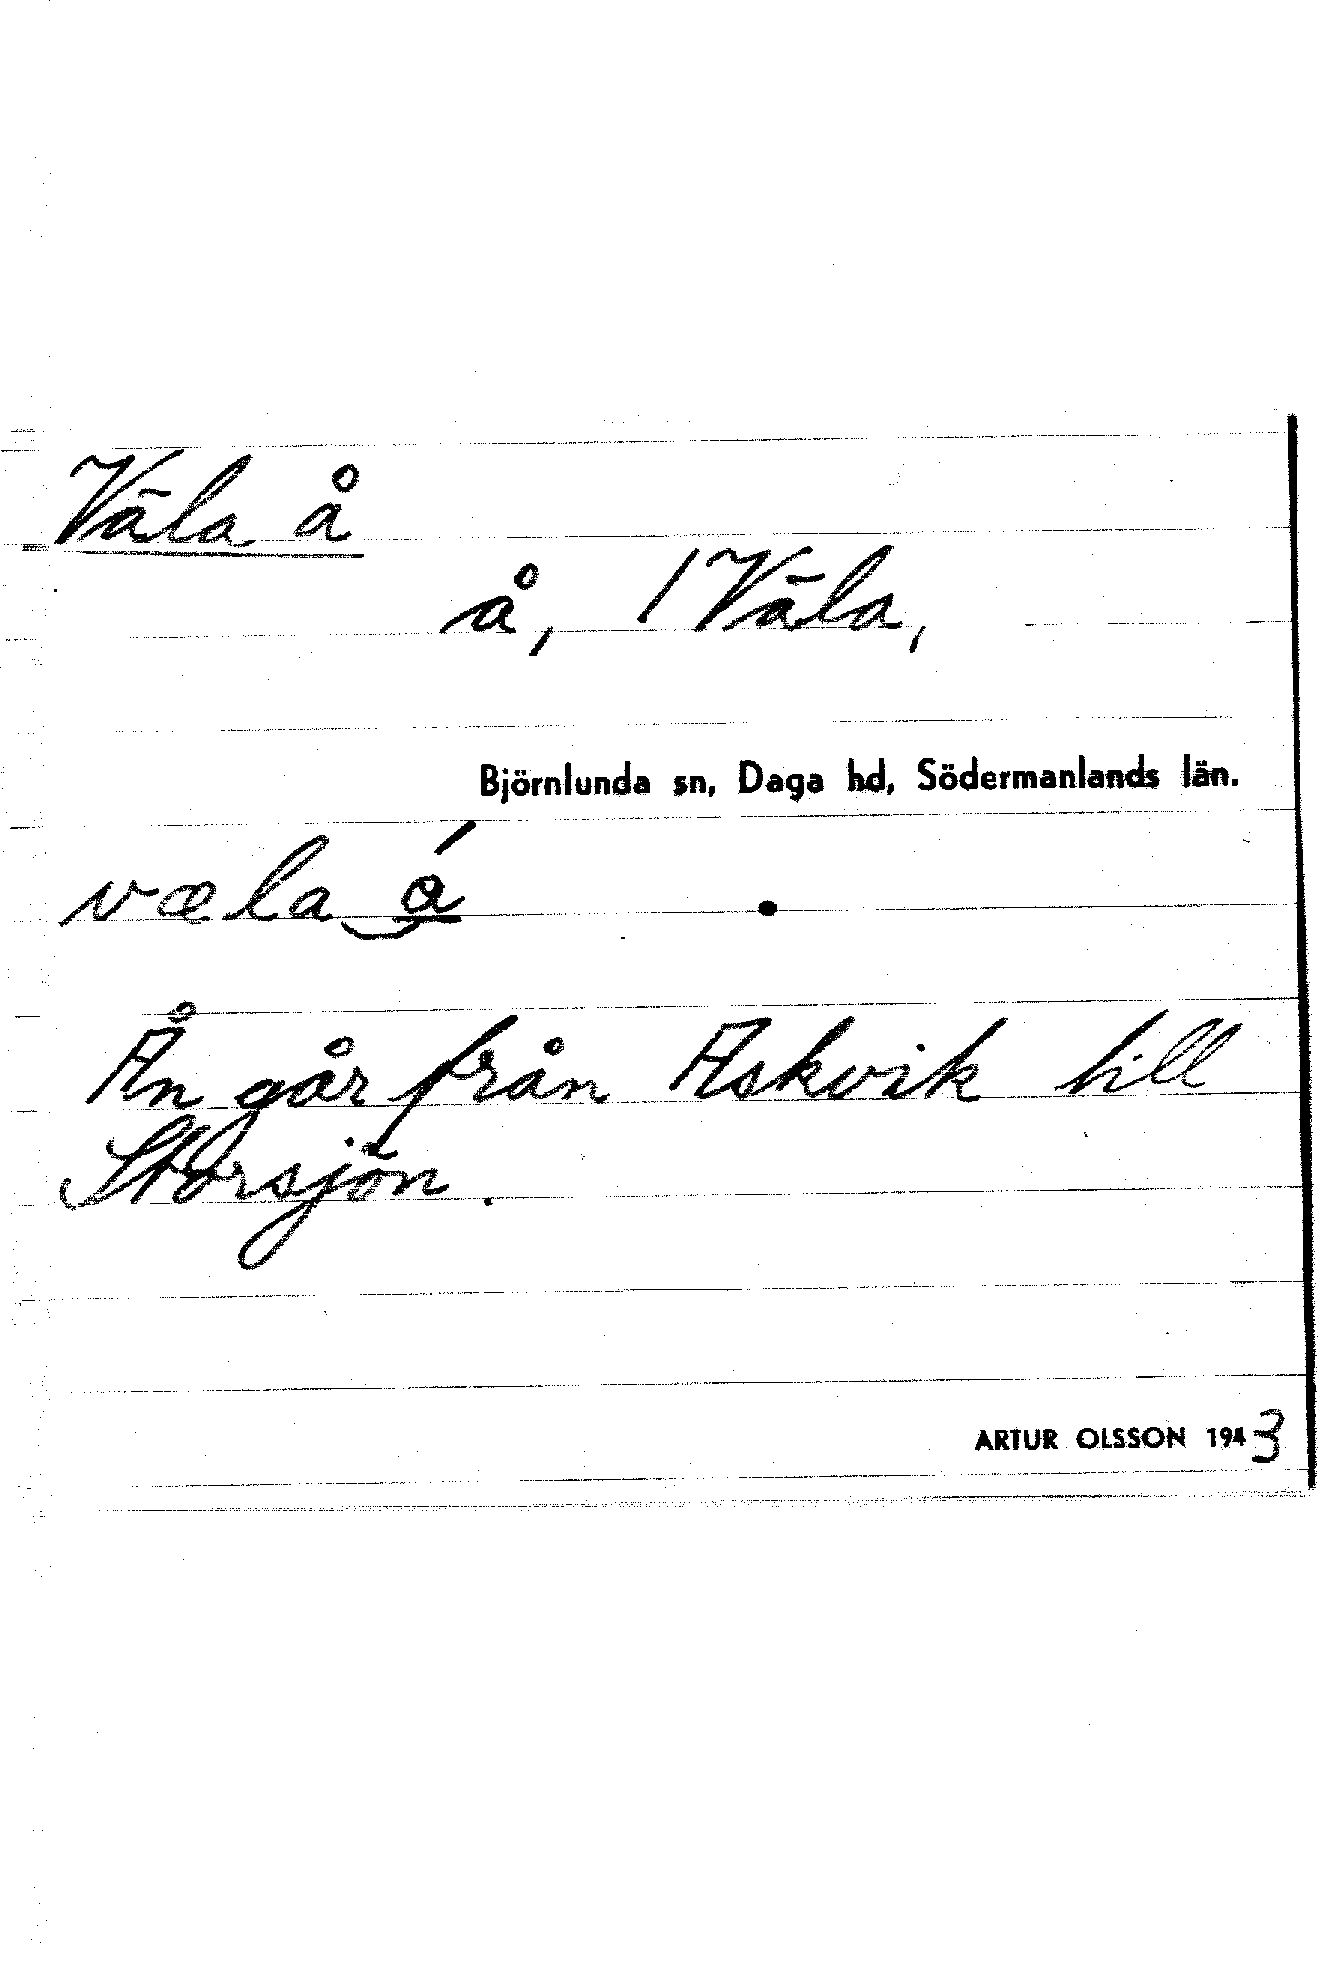 Väla å
å, 1 Väla,
Björnlunda sn, Daga hd, Södermanlands län.
væla‿ǻ
Ån går från Askvik till
Storsjön.
ARTUR OLSSON 1943